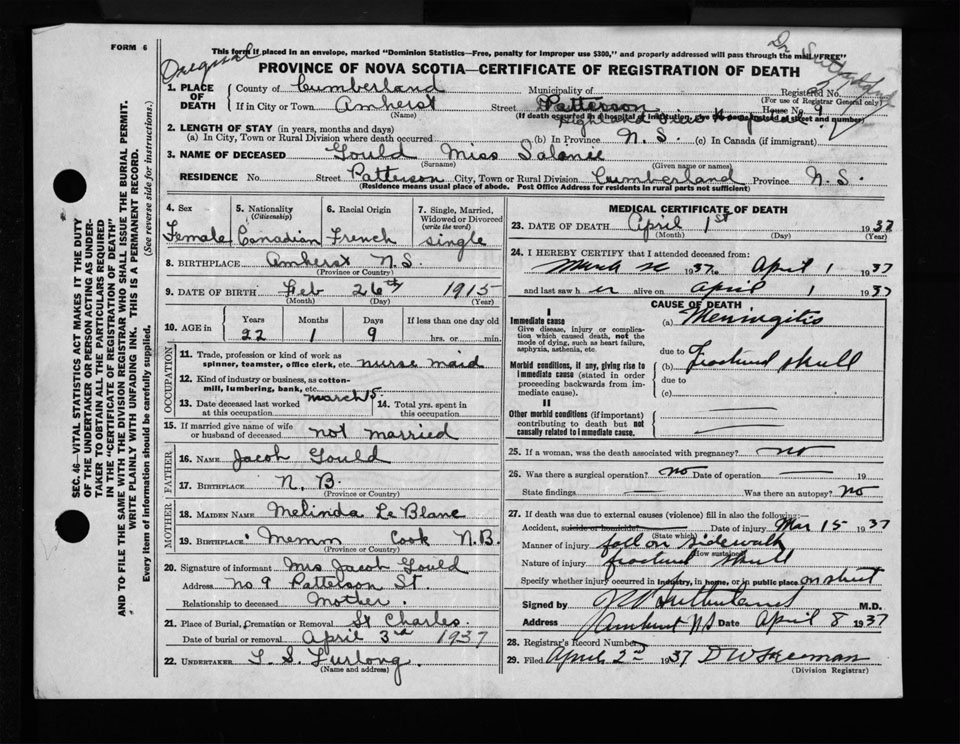 FORM 6
Original
This form if placed in an envelope, marked "Dominion Statistics—Free, penalty for improper use $300," and properly addressed will pass through the mail "FREE"
PROVINCE OF NOVA SCOTIA—CERTIFICATE OF REGISTRATION OF DEATH
1. PLACE OF DEATH
County of Cumberland Municipality of Registered No.
(For use of Registrar General only)
If in City or Town Amherst Street Patterson House No. 9
(Name) (If death occurred in a hospital or institution, give its name instead of street and number)
2. LENGTH OF STAY (in years, months and days)
(a) In City, Town or Rural Division where death occurred (b) In Province N. S. (c) In Canada (if immigrant)
3. NAME OF DECEASED Gould Miss Salanie
(Surname) (Given name or names)
RESIDENCE No. Street Patterson City, Town or Rural Division Cumberland Province N. S.
(Residence means usual place of abode. Post Office Address for residents in rural parts not sufficient)
4. Sex 5. Nationality (Citizenship) 6. Racial Origin 7. Single, Married, Widowed or Divorced (write the word)
Female Canadian French single
8. BIRTHPLACE Amherst N. S.
(Province or Country)
9. DATE OF BIRTH Feb 26th 1915
(Month) (Day) (Year)
10. AGE in Years Months Days If less than one day old
22 1 9 hrs. or min.
OCCUPATION
11. Trade, profession or kind of work as spinner, teamster, office clerk, etc. nurse maid
12. Kind of industry or business, as cotton-mill, lumbering, bank, etc.
13. Date deceased last worked at this occupation March 15 14. Total yrs. spent in this occupation
15. If married give name of wife or husband of deceased not married
FATHER
16. NAME Jacob Gould
17. BIRTHPLACE N. B.
(Province or Country)
MOTHER
18. MAIDEN NAME Melinda Le Blanc
19. BIRTHPLACE Memm Cook N.B.
(Province or Country)
20. Signature of informant Mrs Jacob Gould
Address No 9 Patterson St.
Relationship to deceased Mother
21. Place of Burial, Cremation or Removal St Charles
Date of burial or removal April 3rd 1937
22. UNDERTAKER T. S. Furlong
(Name and address)
MEDICAL CERTIFICATE OF DEATH
23. DATE OF DEATH April 1st 1937
(Month) (Day) (Year)
24. I HEREBY CERTIFY that I attended deceased from:
March 1937 to April 1 1937
and last saw her alive on April 1 1937
CAUSE OF DEATH
I
Immediate cause (a) Meningitis
Give disease, injury or complication which caused death, not the mode of dying, such as heart failure, asphyxia, asthenia, etc.
due to
Morbid conditions, if any, giving rise to immediate cause (stated in order proceeding backwards from immediate cause). (b) fractured skull
due to
(c)
II
Other morbid conditions (if important) contributing to death but not causally related to immediate cause.
25. If a woman, was the death associated with pregnancy? no
26. Was there a surgical operation? no Date of operation 19
State findings Was there an autopsy? no
27. If death was due to external causes (violence) fill in also the following:—
Accident, suicide or homicide? Date of injury Mar 15 1937
(State which)
Manner of injury fall on sidewalk
(How sustained)
Nature of injury fractured skull
Specify whether injury occurred in industry, in home, or in public place on street
Signed by Sutherland M.D.
Address Amherst NS Date April 8 1937
28. Registrar's Record Number
29. Filed April 2nd 1937 D W Freeman
(Division Registrar)
SEC. 46—VITAL STATISTICS ACT MAKES IT THE DUTY
OF THE UNDERTAKER OR PERSON ACTING AS UNDER-
TAKER TO OBTAIN ALL THE PARTICULARS REQUIRED
IN THE "CERTIFICATE OF REGISTRATION OF DEATH"
AND TO FILE THE SAME WITH THE DIVISION REGISTRAR WHO SHALL ISSUE THE BURIAL PERMIT.
WRITE PLAINLY WITH UNFADING INK. THIS IS A PERMANENT RECORD.
Every item of information should be carefully supplied. (See reverse side for instructions.)